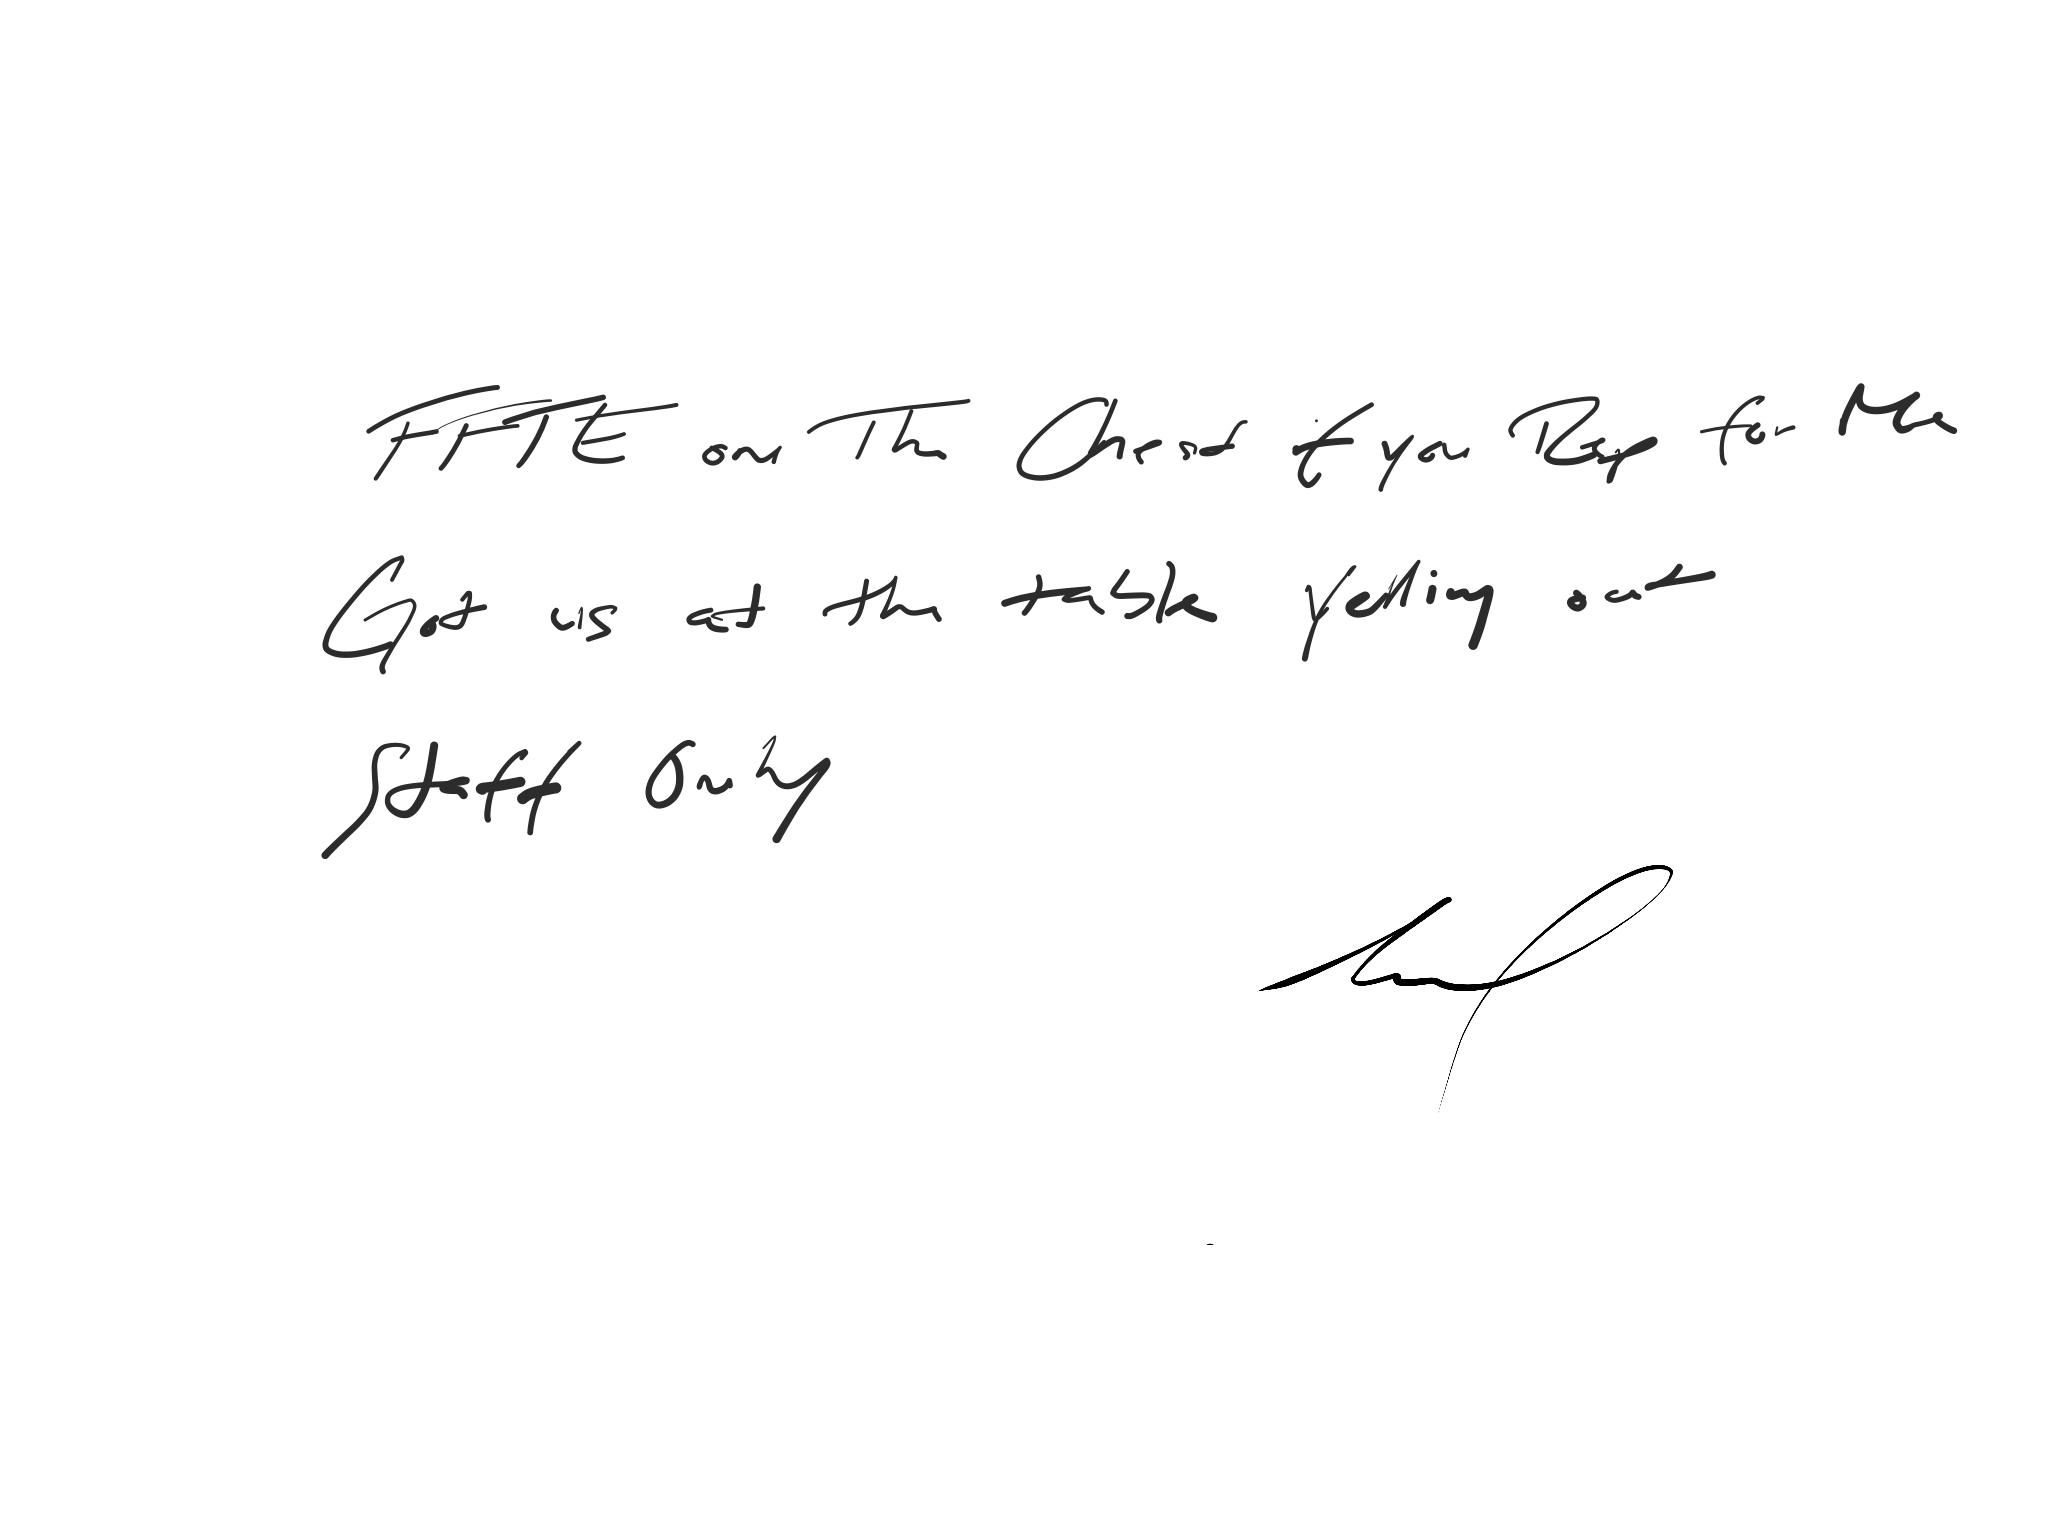 FFTE on The Chest if you Rep for Me
Got us at the table Yelling out
Staff Only